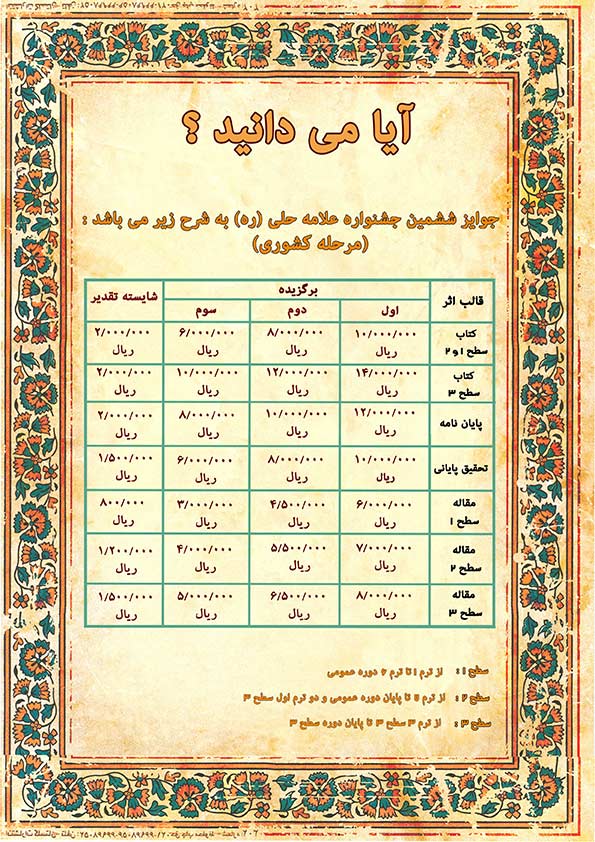 آیا می دانید ؟
جوایز ششمین جشنواره علامه حلی (ره) به شرح زیر می باشد :
(مرحله کشوری)
قالب اثر برگزیده شایسته تقدیر
اول دوم سوم
کتاب سطح ۱ و ۲ ۱۰/۰۰۰/۰۰۰ ریال ۸/۰۰۰/۰۰۰ ریال ۶/۰۰۰/۰۰۰ ریال ۲/۰۰۰/۰۰۰ ریال
کتاب سطح ۳ ۱۴/۰۰۰/۰۰۰ ریال ۱۲/۰۰۰/۰۰۰ ریال ۱۰/۰۰۰/۰۰۰ ریال ۲/۰۰۰/۰۰۰ ریال
پایان نامه ۱۲/۰۰۰/۰۰۰ ریال ۱۰/۰۰۰/۰۰۰ ریال ۸/۰۰۰/۰۰۰ ریال ۲/۰۰۰/۰۰۰ ریال
تحقیق پایانی ۱۰/۰۰۰/۰۰۰ ریال ۸/۰۰۰/۰۰۰ ریال ۶/۰۰۰/۰۰۰ ریال ۱/۵۰۰/۰۰۰ ریال
مقاله سطح ۱ ۶/۰۰۰/۰۰۰ ریال ۴/۵۰۰/۰۰۰ ریال ۳/۰۰۰/۰۰۰ ریال ۸۰۰/۰۰۰ ریال
مقاله سطح ۲ ۷/۰۰۰/۰۰۰ ریال ۵/۵۰۰/۰۰۰ ریال ۴/۰۰۰/۰۰۰ ریال ۱/۲۰۰/۰۰۰ ریال
مقاله سطح ۳ ۸/۰۰۰/۰۰۰ ریال ۶/۵۰۰/۰۰۰ ریال ۵/۰۰۰/۰۰۰ ریال ۱/۵۰۰/۰۰۰ ریال
سطح ۱ : از ترم ۱ تا ترم ۶ دوره عمومی
سطح ۲ : از ترم ۷ تا پایان دوره عمومی و دو ترم اول سطح ۳
سطح ۳ : از ترم ۳ سطح ۳ تا پایان دوره سطح ۳